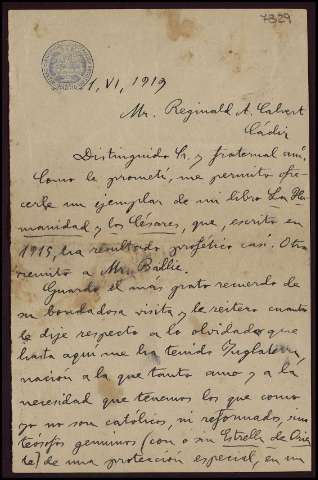 7329
1, VI, 1919
Mr. Reginald A. Calvert
Cádiz
Distinguido Sr. y fraternal am.
Como le prometí, me permito ofre-
cerle un ejemplar de mi libro La Hu-
manidad y los Césares, que, escrito en
1915, ha resultado profético casi. Otro
remito a Mr. Baillie.
Guardo el más grato recuerdo de
su bondadosa visita y le reitero cuanto
le dije respecto a lo olvidados que
hasta aquí me ha tenido Inglaterra,
nación a la que tanto amo y a la
necesidad que tenemos los que como
yo no son católicos, ni reformados, sino
teósofos genuinos (con o sin Estrella de Orien-
te) de una protección especial, en un